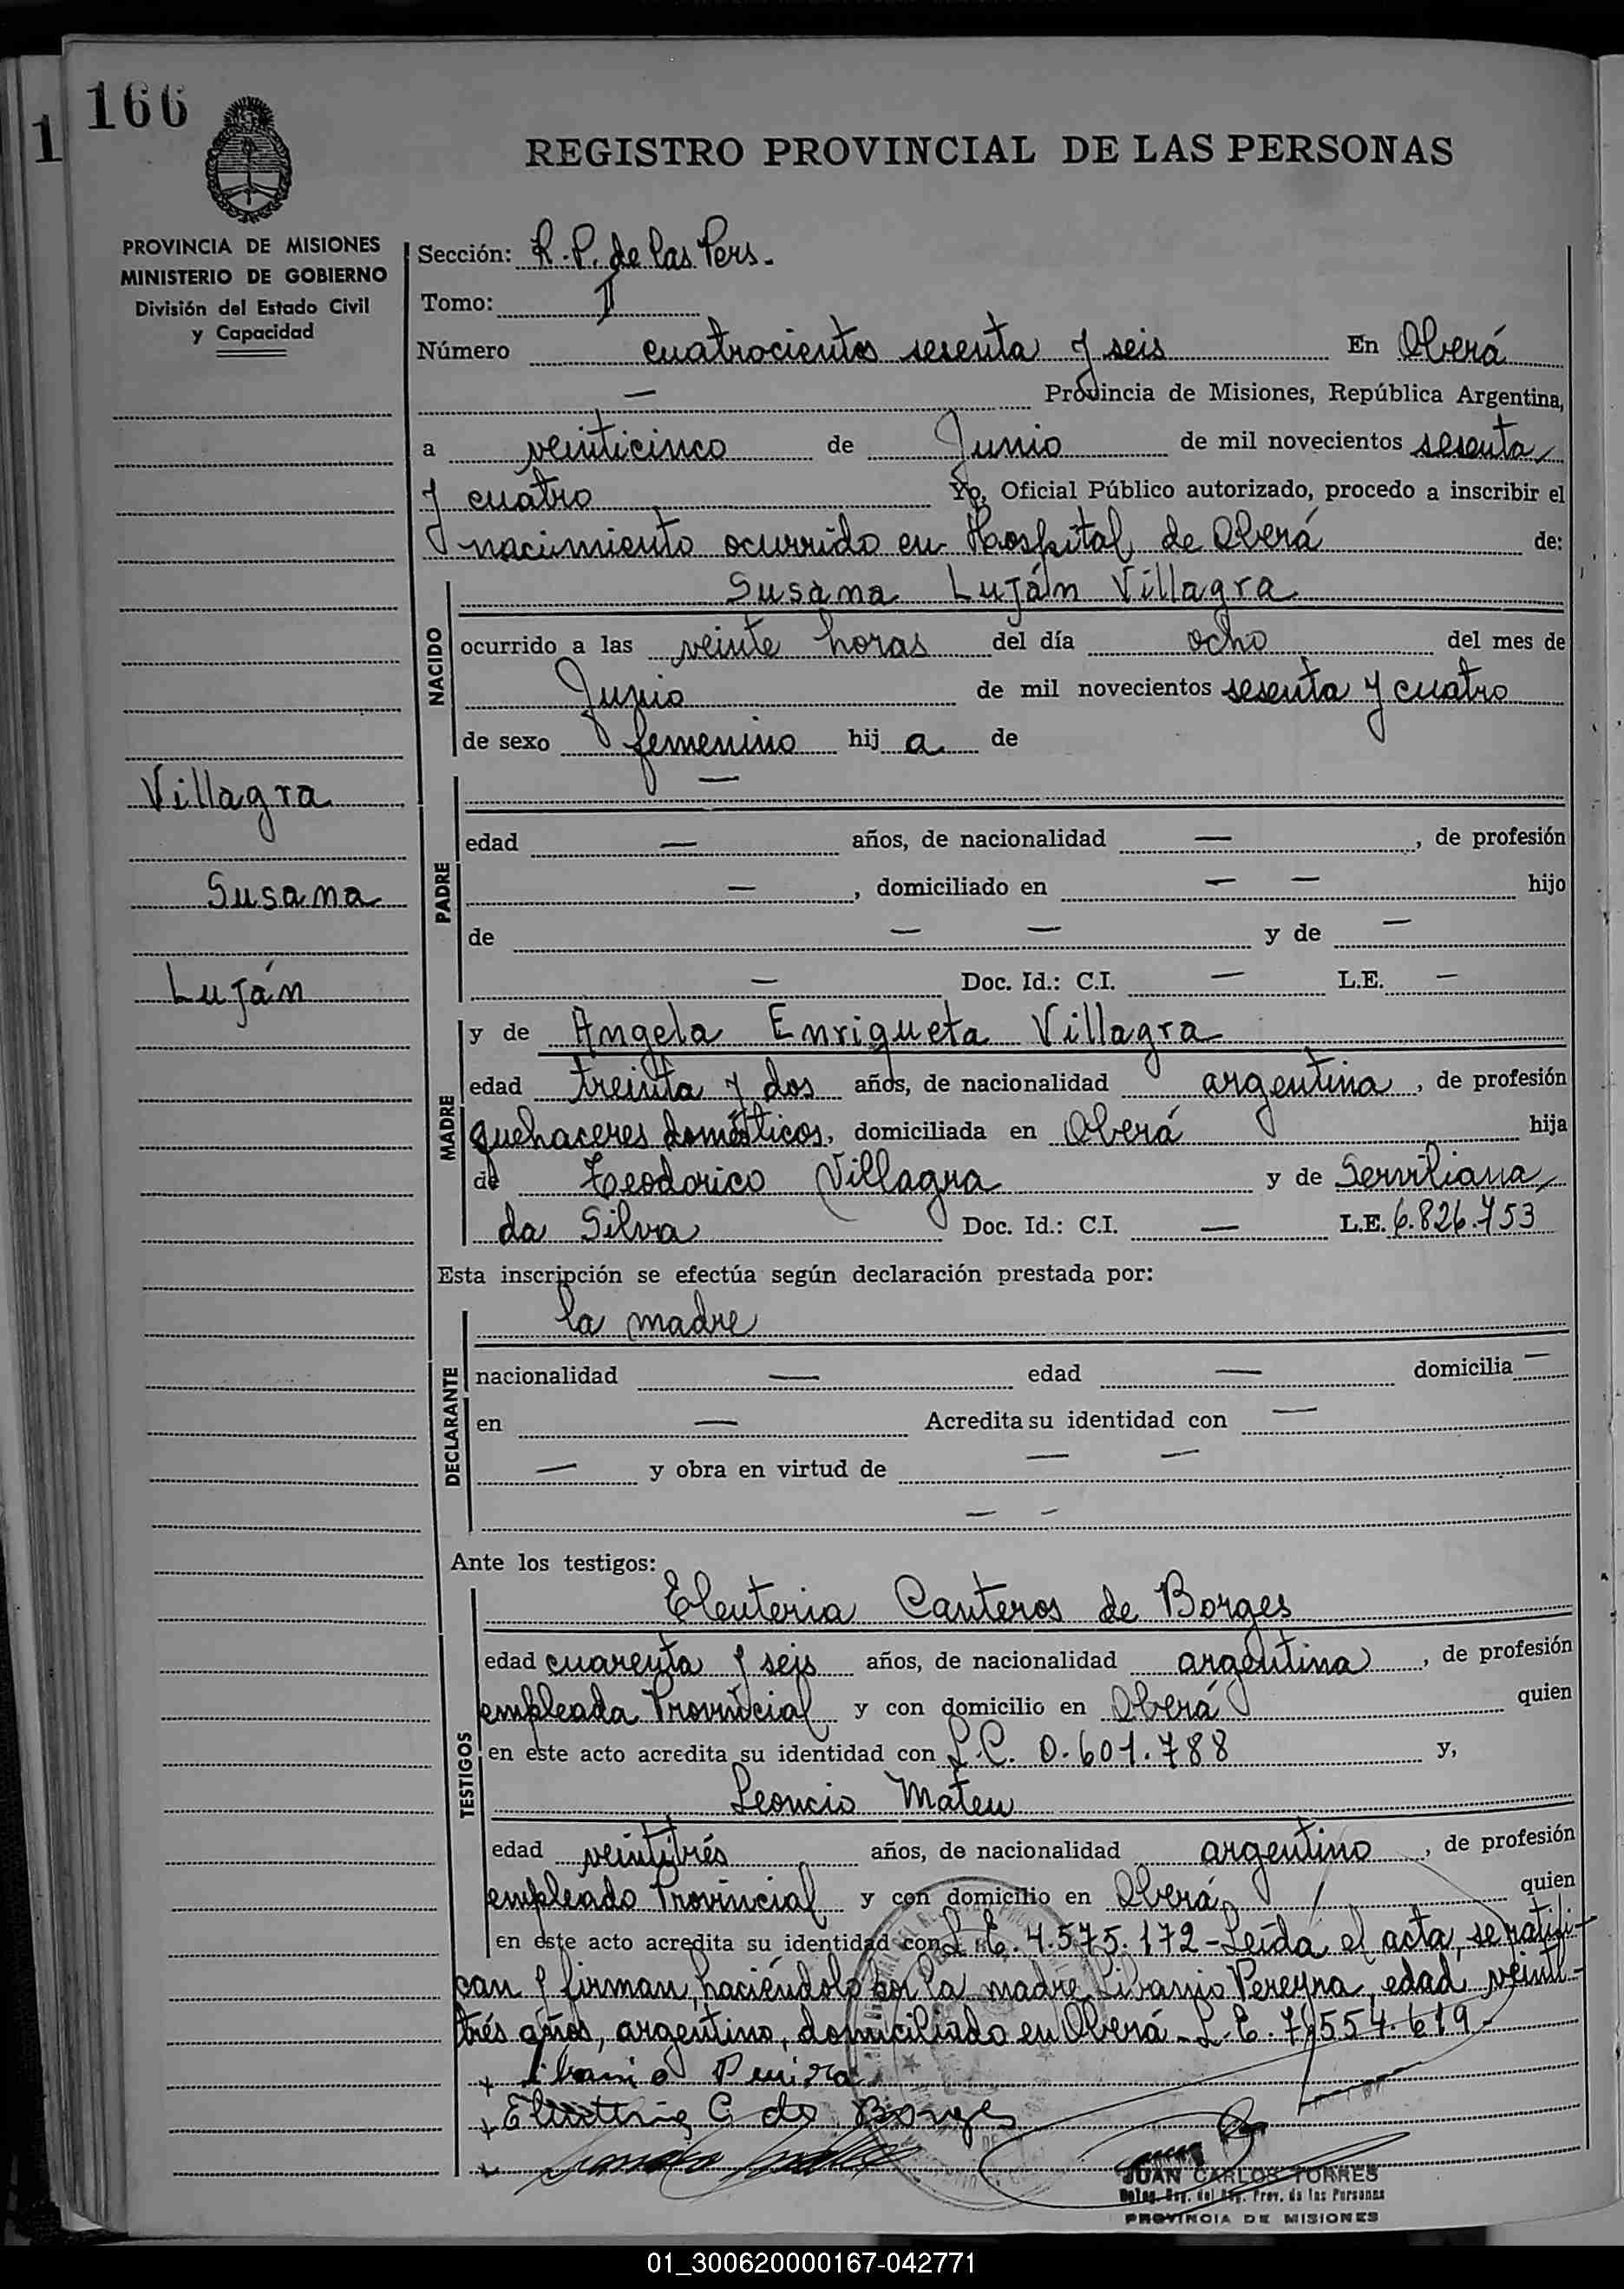 166
1
REGISTRO PROVINCIAL DE LAS PERSONAS
PROVINCIA DE MISIONES
MINISTERIO DE GOBIERNO
División del Estado Civil
y Capacidad
Sección: R.P. de las Pers.
Tomo: II
Número cuatrocientos sesenta y seis En Oberá
— Provincia de Misiones, República Argentina,
a veinticinco de Junio de mil novecientos sesenta
y cuatro Yo, Oficial Público autorizado, procedo a inscribir el
nacimiento ocurrido en Hospital de Oberá de:
NACIDO
Susana Luján Villagra
ocurrido a las veinte horas del día ocho del mes de
Junio de mil novecientos sesenta y cuatro
de sexo femenino hij a de
Villagra
Susana
Luján
PADRE
—
edad — años, de nacionalidad —, de profesión
—, domiciliado en — — hijo
de — — y de —
— Doc. Id.: C.I. — L.E. —
MADRE
y de Angela Enriqueta Villagra
edad treinta y dos años, de nacionalidad argentina, de profesión
quehaceres domésticos, domiciliada en Oberá hija
de Teodorico Villagra y de Serviliana
da Silva Doc. Id.: C.I. — L.E. 6.826.753
Esta inscripción se efectúa según declaración prestada por:
DECLARANTE
la madre
nacionalidad — edad — domicilia —
en — Acredita su identidad con —
— y obra en virtud de — —
— —
Ante los testigos:
TESTIGOS
Eleuteria Canteros de Borges
edad cuarenta y seis años, de nacionalidad argentina, de profesión
empleada Provincial y con domicilio en Oberá quien
en este acto acredita su identidad con L.C. 0.601.788 y,
Leoncio Mateu
edad veintitrés años, de nacionalidad argentino, de profesión
empleado Provincial y con domicilio en Oberá quien
en este acto acredita su identidad con L.E. 4.575.172 - Leída el acta, se ratifi-
can y firman, haciéndolo por la madre Libanio Pereyra, edad veinti-
trés años, argentino, domiciliado en Oberá - L.E. 7.554.619 -
+ Libanio Pereira
+ Eleuteria C de Borges
+
JUAN CARLOS TORRES
Deleg. Reg. del Reg. Prov. de las Personas
PROVINCIA DE MISIONES
01_300620000167-042771